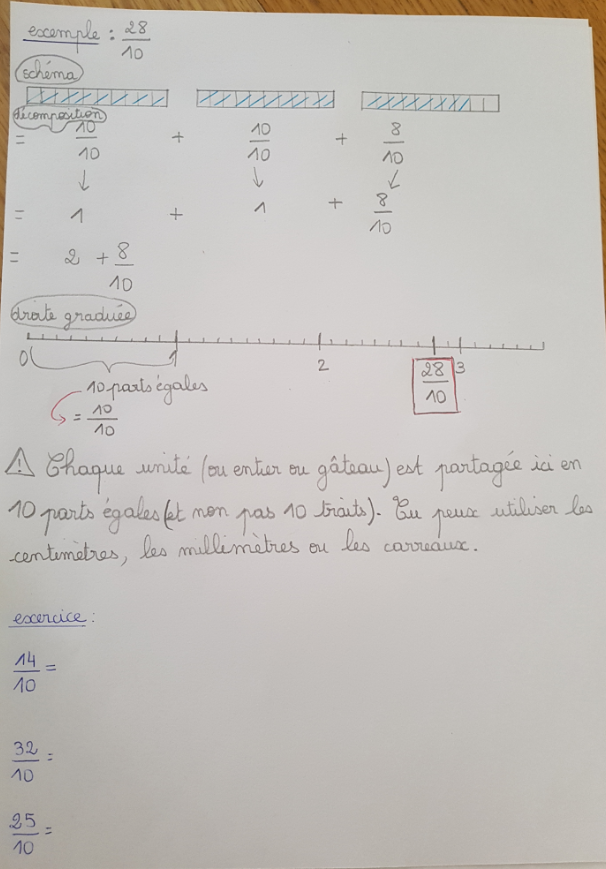 exemple : 28/10
schéma
décomposition
= 10/10 + 10/10 + 8/10
↓ ↓ ↓
= 1 + 1 + 8/10
= 2 + 8/10
droite graduée
0 1 2 28/10 3
10 parts égales
= 10/10
⚠ Chaque unité (ou entier ou gâteau) est partagée ici en
10 parts égales (et non pas 10 traits). Tu peux utiliser les
centimètres, les millimètres ou les carreaux.
exercice :
14/10 =
32/10 =
25/10 =